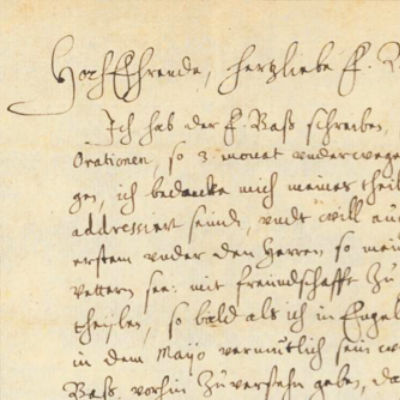 HochEhrende, hertzliebe F.
Ich hab der F. Baß schreiben,
Orationen, so 3 monat underwege
gen, ich bedancke mich meines theil
addressiert seind, undt will auc
erstem under den Herren so mein
vettern see: mit freündschafft zu
theylen, so bald als ich in Engel
in dem Mayo vermutlich sein w
Baß, vorhin zuversehn geben, da